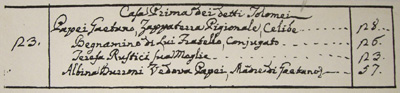 Casa Prima dei detti Tolomei
Papei Gaetano, Zappaterra Pigionale, Celibe 28.
123. Begnamino di Lui Fratello, Conjugato 26.
Teresa Rustici sua Moglie 23.
Albina Burroni Vedova Papei, Madre di Gaetano, 57.